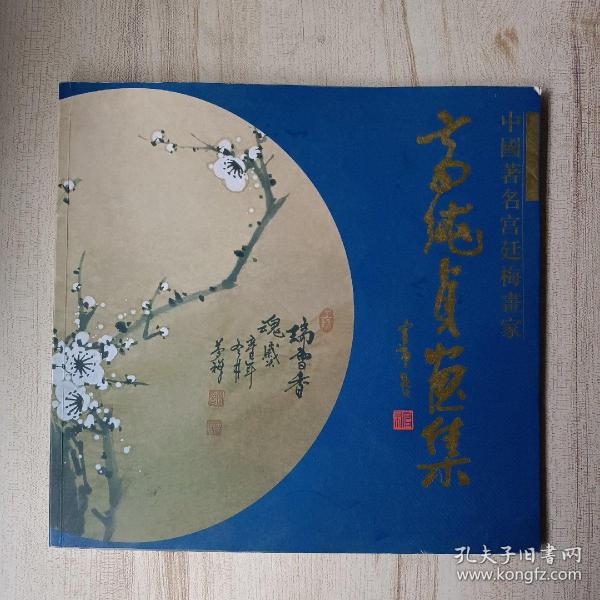 中國著名宫廷梅畫家
高純貞画集
瑞雪香
魂
孔夫子旧书网
www.kongfz.com